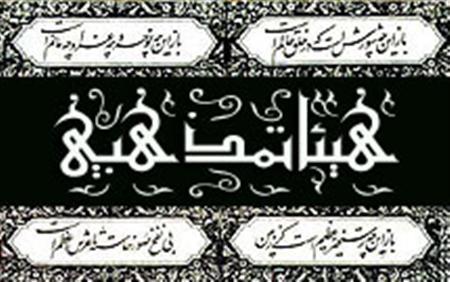 باز این چه شورش است که در خلق عالم است
باز این چه نوحه و چه عزا و چه ماتم است
هیئات مذهبی
باز این چه رستخیز عظیم است کز زمین
بی نفخ صور خاسته تا عرش اعظم است